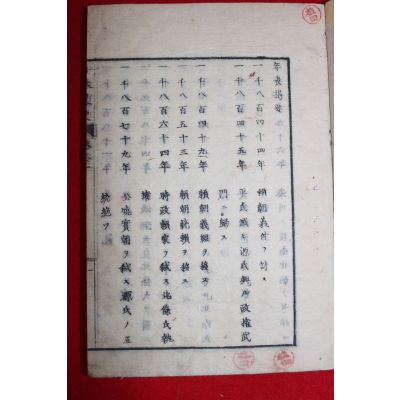 年表
一千八百四十四年 頼朝義仲ヲ討ス
一千八百四十五年 平氏滅ス源氏興ル政権武
門ニ歸ス
一千八百四十九年 頼朝義經ヲ殺ス
一千八百五十三年 頼朝範頼ヲ殺ス
一千八百六十四年 時政頼家ヲ弑ス北條氏執
権
一千八百七十九年 公暁實朝ヲ弑ス源氏ノ正
統絶ヲ